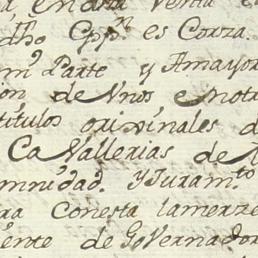 en dha Venta
dho Cappn es Corza.
Parte y Amayor
on de Vnos e notr
titulos orixinales d
Ca Vallerias de
mnidad. y Juramto
ra Conesta lamerze
iente de GoVernador